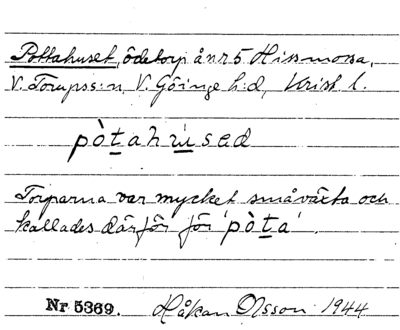 Pottahuset, ödetorp å nr 5 Hissmossa,
V. Torups s:n, V. Göinge h:d, Krist. l.
pòtahùsed
Torparna var mycket småväxta och
kallades därför för 'pòta'.
Nr 5369. Håkan Olsson 1944